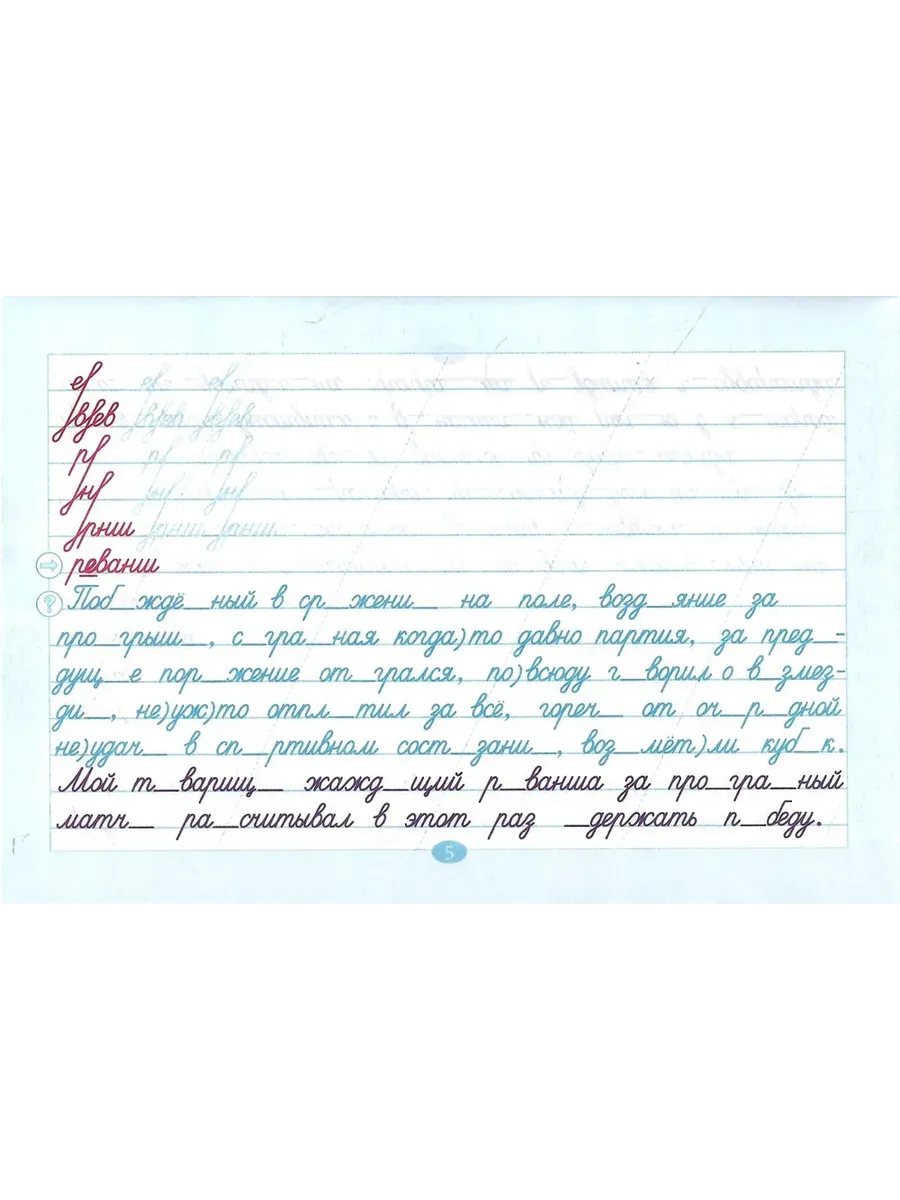 реванш
Поб_ждё_ный в ср_жени_ на поле, возд_яние за
про_грыш_, с_гра_ная когда)то давно партия, за пред_-
дущ_е пор_жение от_грался, по)всюду г_ворил о в_змез-
ди_, не)уж)то отпл_тил за всё, гореч_ от оч_р_дной
не)удач_ в сп_ртивном сост_зани_, воз_мёт)ли куб_к.
Мой т_варищ_ жажд_щий р_ванша за про_гра_ный
матч_ ра_считывал в этот раз _держать п_беду.
5